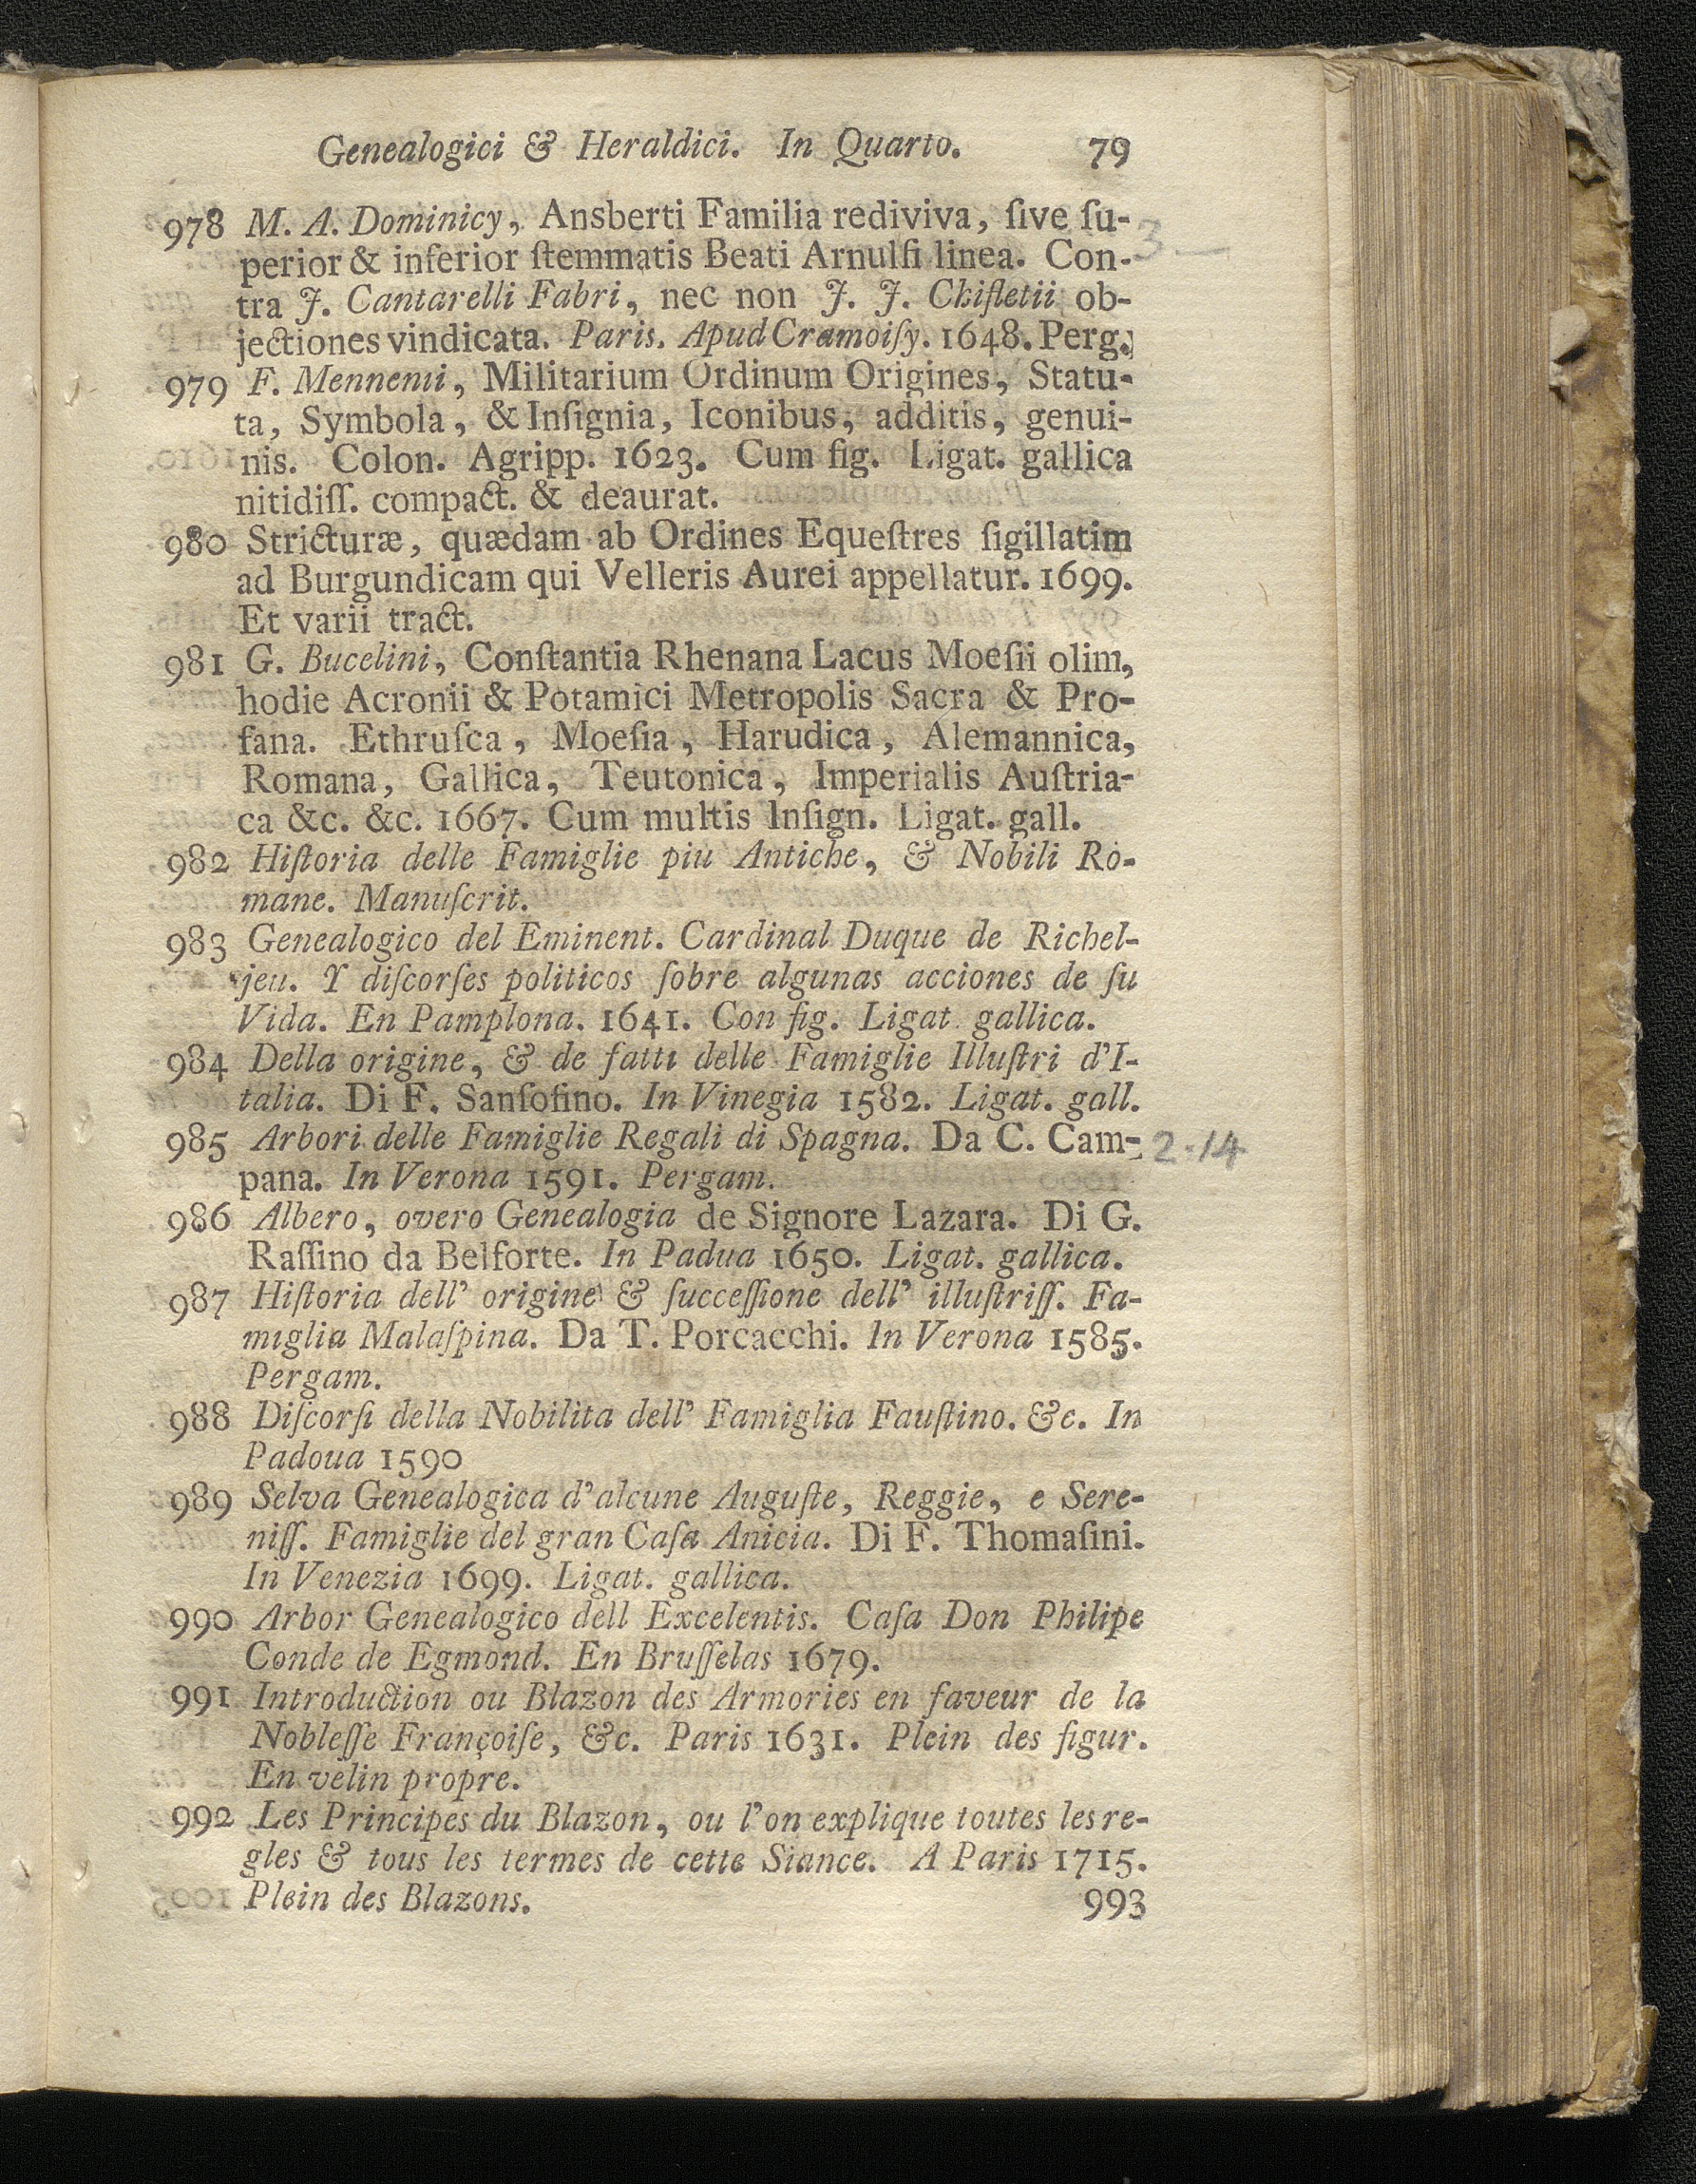 Genealogici & Heraldici. In Quarto. 79
978 M. A. Dominicy, Ansberti Familia rediviva, ſive ſu-
perior & inferior ſtemmatis Beati Arnulfi linea. Con-
3 —
tra J. Cantarelli Fabri, nec non J. J. Chifletii ob-
jectiones vindicata. Paris. Apud Cramoiſy. 1648. Perg.
979 F. Mennenii, Militarium Ordinum Origines, Statu-
ta, Symbola, & Inſignia, Iconibus, additis, genui-
nis. Colon. Agripp. 1623. Cum fig. Ligat. gallica
nitidiſſ. compact. & deaurat.
980 Stricturæ, quædam ab Ordines Equeſtres ſigillatim
ad Burgundicam qui Velleris Aurei appellatur. 1699.
Et varii tract.
981 G. Bucelini, Conſtantia Rhenana Lacus Moeſii olim,
hodie Acronii & Potamici Metropolis Sacra & Pro-
fana. Ethruſca, Moeſia, Harudica, Alemannica,
Romana, Gallica, Teutonica, Imperialis Auſtria-
ca &c. &c. 1667. Cum multis Inſign. Ligat. gall.
982 Hiſtoria delle Famiglie piu Antiche, & Nobili Ro-
mane. Manuſcrit.
983 Genealogico del Eminent. Cardinal Duque de Richel-
jeu. Y diſcorſes politicos ſobre algunas acciones de ſu
Vida. En Pamplona. 1641. Con fig. Ligat gallica.
984 Della origine, & de fatti delle Famiglie Illuſtri d'I-
talia. Di F. Sanſofino. In Vinegia 1582. Ligat. gall.
985 Arbori delle Famiglie Regali di Spagna. Da C. Cam- 2.14
pana. In Verona 1591. Pergam.
986 Albero, overo Genealogia de Signore Lazara. Di G.
Raſſino da Belforte. In Padua 1650. Ligat. gallica.
987 Hiſtoria dell' origine & ſucceſſione dell' illuſtriſſ. Fa-
miglia Malaſpina. Da T. Porcacchi. In Verona 1585.
Pergam.
988 Diſcorſi della Nobilita dell' Famiglia Fauſtino. &c. In
Padoua 1590
989 Selva Genealogica d'alcune Auguſte, Reggie, e Sere-
niſſ. Famiglie del gran Caſa Anicia. Di F. Thomaſini.
In Venezia 1699. Ligat. gallica.
990 Arbor Genealogico dell Excelentis. Caſa Don Philipe
Conde de Egmond. En Bruſſelas 1679.
991 Introduction ou Blazon des Armories en faveur de la
Nobleſſe Françoiſe, &c. Paris 1631. Plein des figur.
En velin propre.
992 Les Principes du Blazon, ou l'on explique toutes les re-
gles & tous les termes de cette Siance. A Paris 1715.
Plein des Blazons.
993